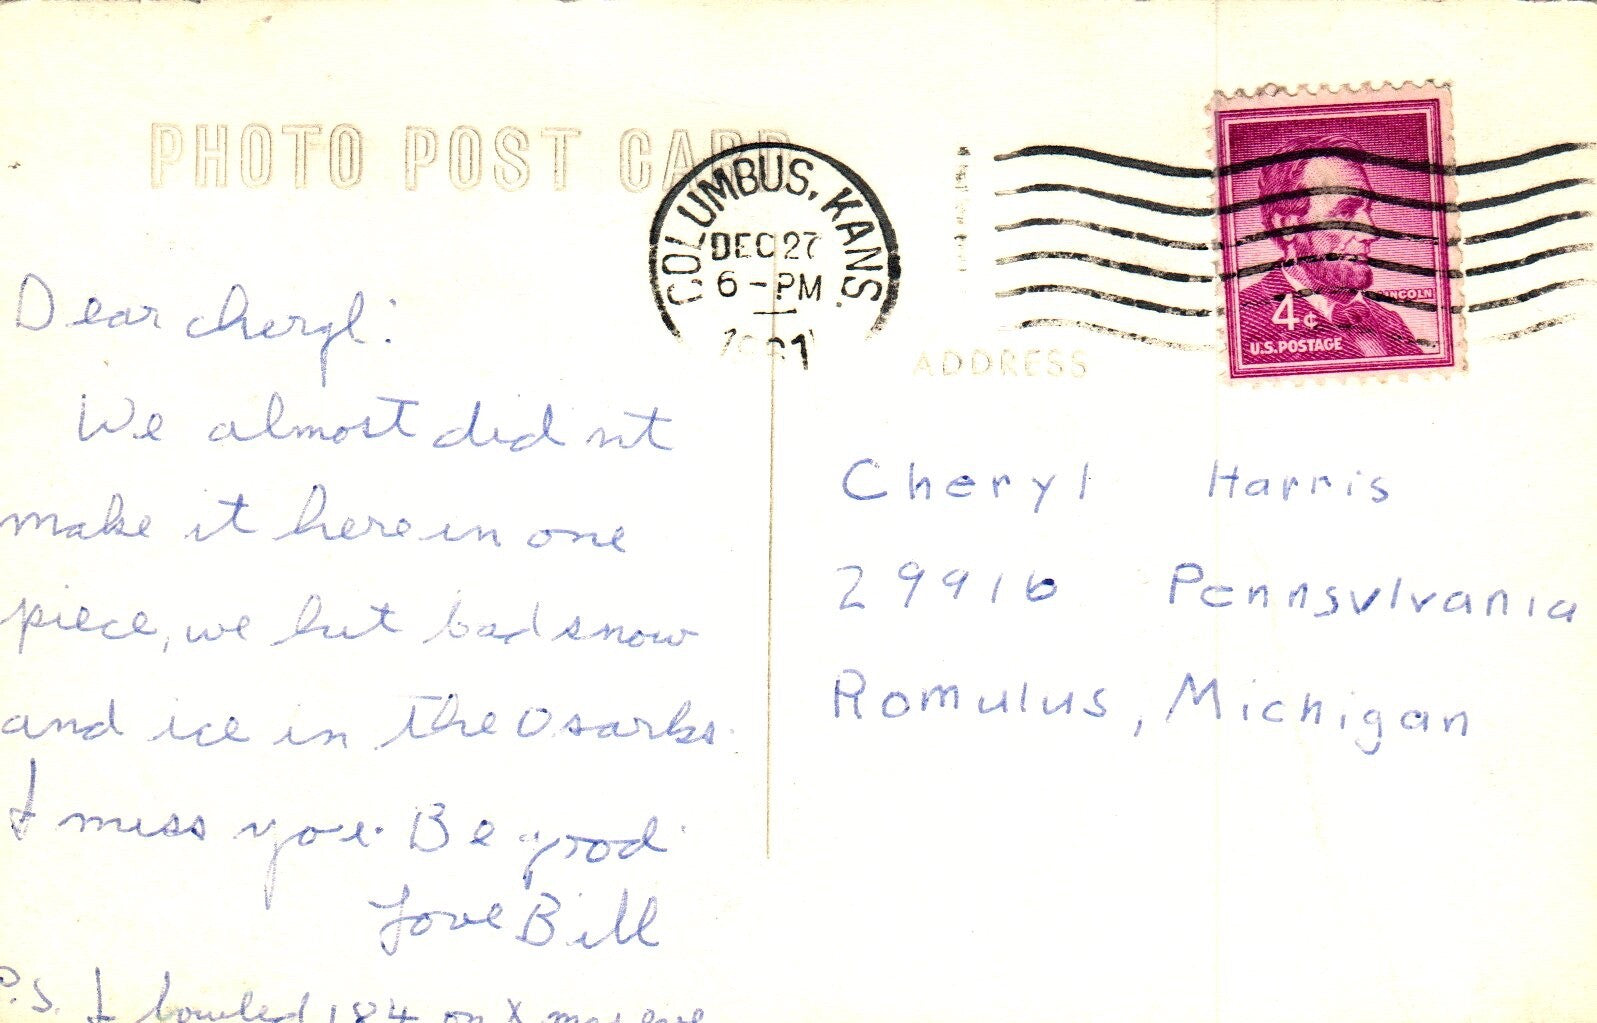 PHOTO POST CARD
COLUMBUS, KANS.
DEC 27
6-PM
LINCOLN
4¢
U.S. POSTAGE
ADDRESS
Dear Cheryl:
We almost didnt
make it here in one
piece, we hit bad snow
and ice in the Osarks.
I miss you. Be good
Love Bill
P.S. I bowled 184 on Xmas eve
Cheryl Harris
29916 Pennsylvania
Romulus, Michigan